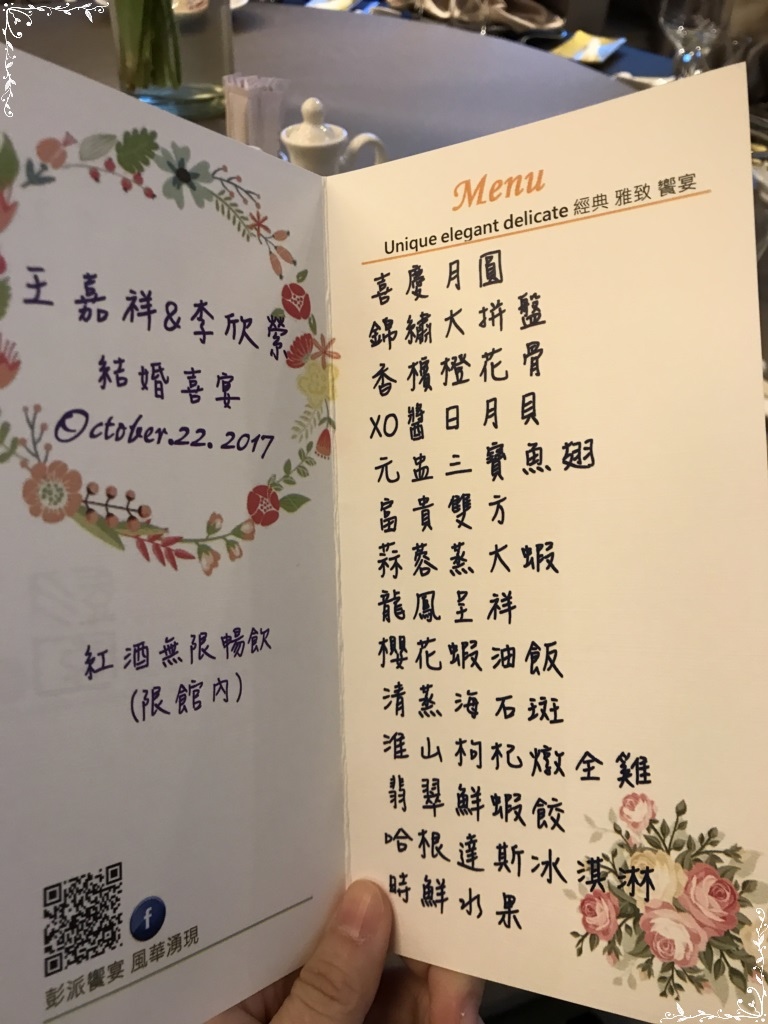 王嘉祥&李欣縈
結婚喜宴
October.22.2017
紅酒無限暢飲
(限館內)
彭派饗宴 風華湧現
Menu
Unique elegant delicate 經典 雅致 饗宴
喜慶月圓
錦繡大拼盤
香檳橙花骨
XO醬日月貝
元盅三寶魚翅
富貴雙方
蒜蓉蒸大蝦
龍鳳呈祥
櫻花蝦油飯
清蒸海石斑
淮山枸杞燉全雞
翡翠鮮蝦餃
哈根達斯冰淇淋
時鮮水果